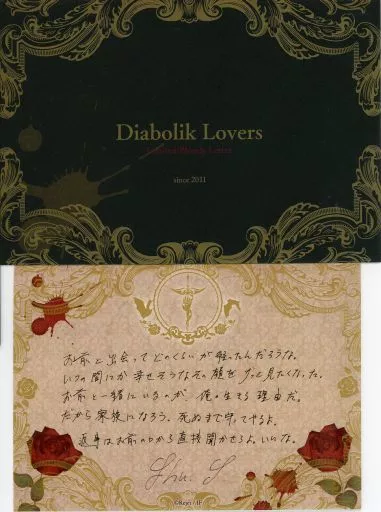 Diabolik Lovers
Limited Bloody Letter
since 2011
お前と出会ってどのくらいが経ったんだろうな。
いつの間にか幸せそうなその顔をずっと見たくなった。
お前と一緒にいるのが俺の生きる理由だ。
だから家族になろう。死ぬまで守ってやるよ。
返事はお前の口から直接聞かせろよ。いいな。
Shu. S
©Rejet / IF